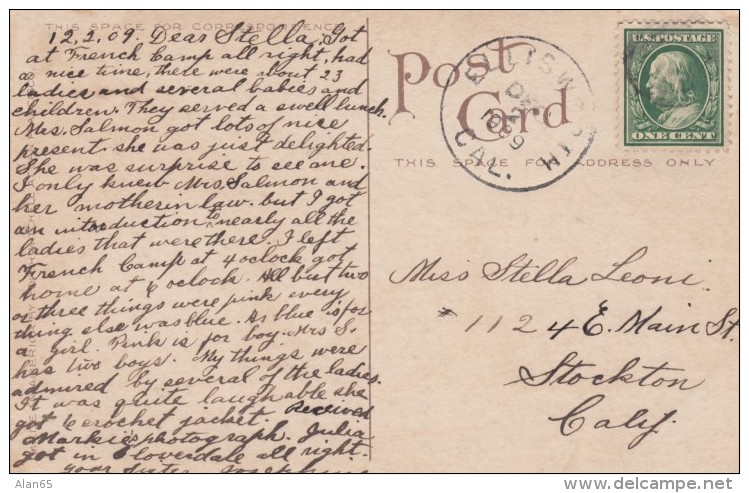 THIS SPACE FOR CORRESPONDENCE
12.2.09. Dear Stella, Got
at French Camp all right, had
a nice time, there were about 23
ladies and several babies and
children. They served a swell lunch.
Mrs. Salmon got lots of nice
present. she was just delighted.
She was surprise to see me.
I only knew Mrs. Salmon and
her mother in law. but I got
an introduction to nearly all the
ladies that were there. I left
French Camp at 4 oclock got
home at 6 oclock. All but two
or three things were pink every
thing else was blue. As blue is for
a girl. Pink is for boy. Mrs S.
has two boys. My things were
admired by several of the ladies.
It was quite laughable she
got 6 crochet jacket. Received
Markie's photograph. Julia
got in Cloverdale all right.
your Sister
Post Card
THIS SPACE FOR ADDRESS ONLY
CAL.
U.S. POSTAGE
ONE CENT
Miss Stella Leoni.
1124 E. Main St.
Stockton
Calif.
Alan65
delcampe.net